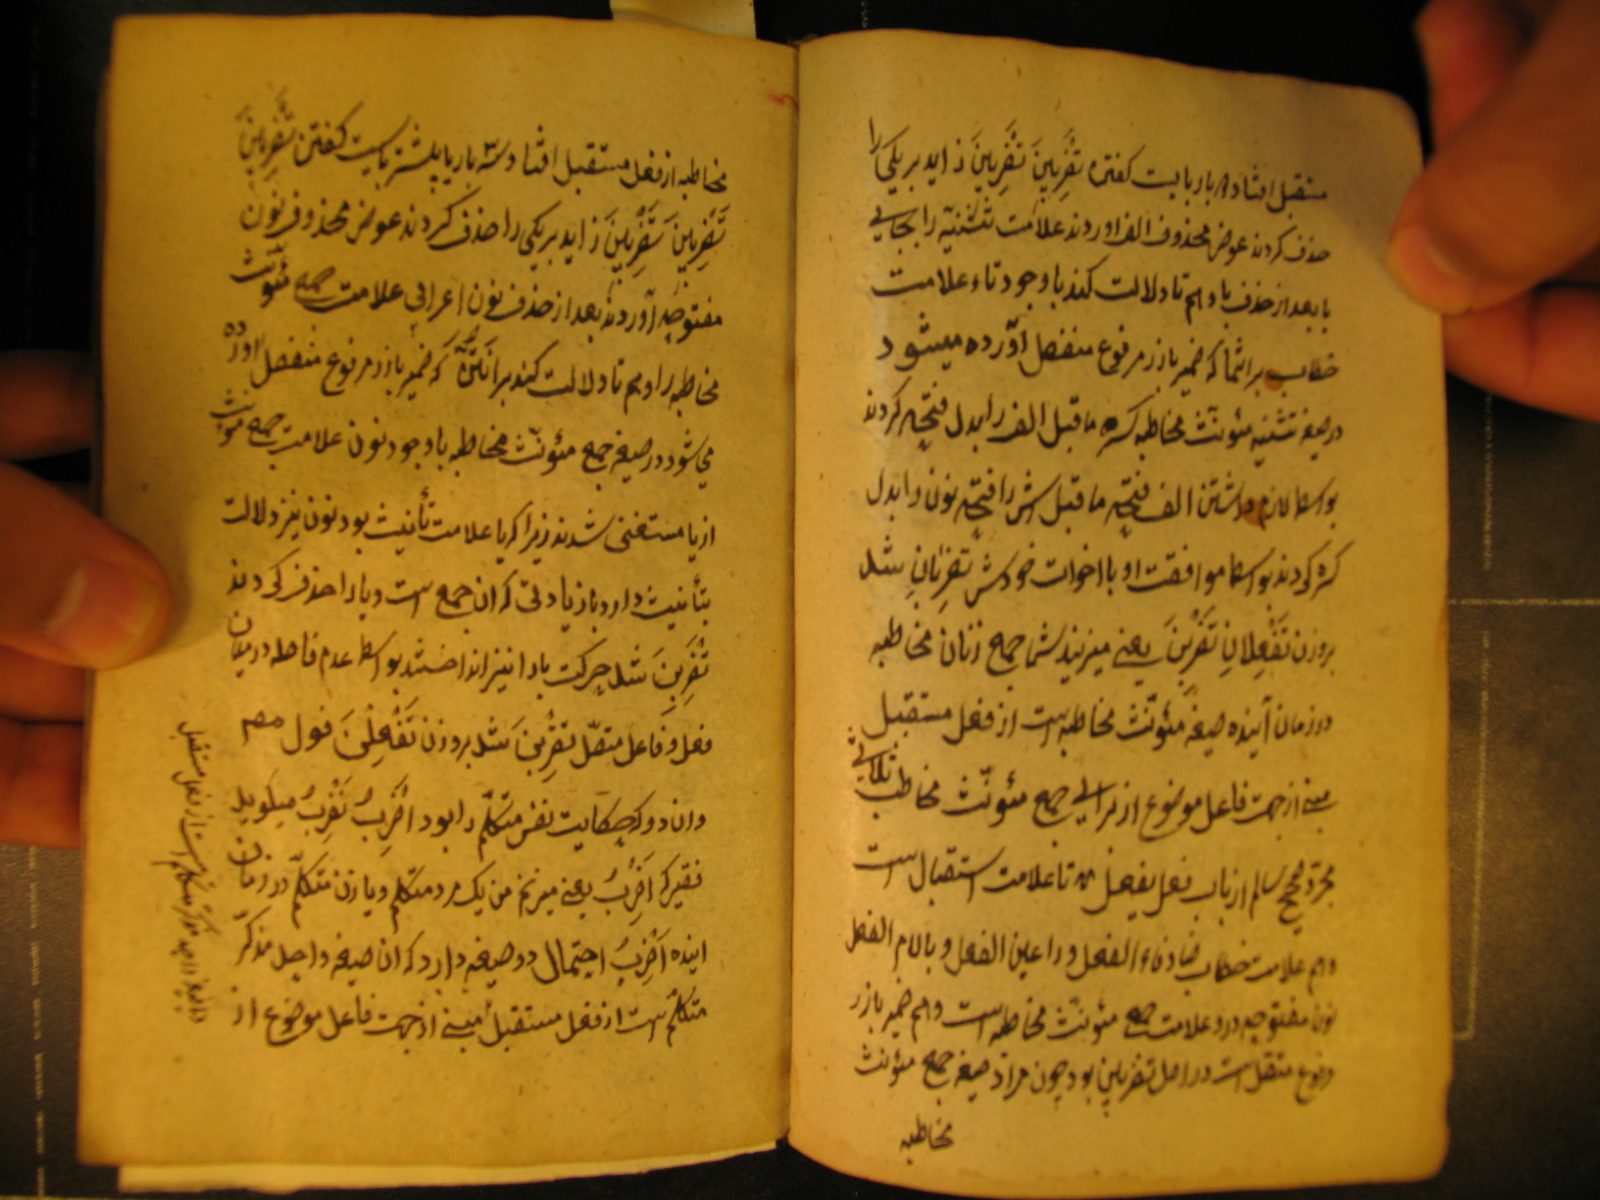 مستقبل افتاد دو بار بایست کفتن تَضْرِبِینَ تَضْرِبِینَ زاید بر یکی را
حذف کردند عوض محذوف الف اوردند علامت تثنیه را بجایی
یا بعد از حذف یا وهم تا دلالت کند با وجود تاء علامت
خطاب بر انتما که ضمیر بارز مرفوع منفصل آورده میشود
در صیغه تثنیه مئونث مخاطبه کسره ما قبل الف را بدل فتحه کردند
بواسطه لازم داشتن الف فتحه ما قبلش را فتحه نون را بدل
کسره کردند بواسطه موافقت او با اخوات خودش تَضْرِبَانِ شد
بر وزن تَفْعِلَانِ تَضْرِبْنَ یعنے میزنید شما جمع زنان مخاطبه
در زمان آینده صیغه جمع مئونث مخاطبه است از فعل مستقبل
مبنے از جهت فاعل موضوع از برایے جمع مئونث مخاطب ثلاثیے
مجرد صحیح سالم از باب فعل یفعل تا علامت استقبال است
وهم علامت خطاب ضاد فاء الفعل و را عین الفعل و با لام الفعل
نون مفتوحه درو علامت جمع مئونث مخاطبه است وهم ضمیر بارز
مرفوع متصل است در اصل تضربین بود چون مراد صیغه جمع مئونث
مخاطبه
مخاطبه از فعل مستقبل افتاد سه بار یا بیشتر بایست کفتن تَضْرِبِینَ
تَضْرِبِینَ تَضْرِبِینَ زاید بر یکی را حذف کردند عوض محذوف نون
مفتوحه آوردند بعد از حذف نون اعرابی علامت جمع مئونث
مخاطبه را وهم تا دلالت کند بر انتنّ که ضمیر بارز مرفوع منفصل اورده
می شود در صیغه جمع مئونث مخاطبه با وجود نون علامت جمع مئونث
از یا مستغنی شدند زیرا که یا علامت تأنیث بود نون نیز دلالت
بتأنیث دارد با زیادتی که ان جمع است و یا را حذف کردند
تَضْرِبِنَ شد حرکت با را نیز انداختند بواسطه عدم فاصله در میان
فعل و فاعل متصل تَضْرِبْنَ شد بر وزن تَفْعِلْنَ قول مصـ
وان دو که حکایت نفس متکلم را بود اَضْرِبُ نَضْرِبُ میکوید
فقیر که اَضْرِبُ یعنے میزنم من یک مرد متکلم و یا زن متکلم در زمان
اینده اَضْرِبُ احتمال دو صیغه دارد که ان صیغه واحد مذکر
متکلم است از فعل مستقبل مبنے از جهت فاعل موضوع از